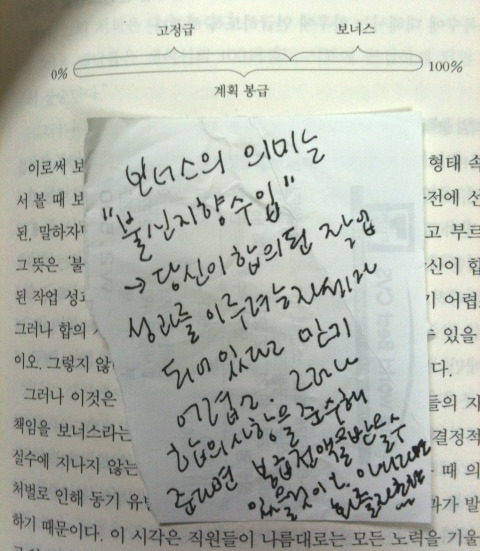 고정급 보너스
0% 100%
계획 봉급
이로써 보 형태 속
서 볼 때 보 전에 선
된, 말하자 고 부르
그 뜻은 '불 신이 합
된 작업 성 기 어렵
그러나 합의 수 있을
이오. 그렇지 않 다.
그러나 이것은 들의 지
책임을 보너스라는 결정적
실수에 지나지 않는 때 의
처벌로 인해 동기 유 과가 발
하기 때문이다. 이 시각은 직원들이 나름대로는 모든 노력을 기울
보너스의 의미는
"불신지향수입"
→ 당신이 합의된 작업
성과를 이루려는 자세가
되어 있다고 믿기
어렵고. 그러나
합의사항을 준수해
준다면 봉급전액을 받을 수
있을 것이오. 아니라면